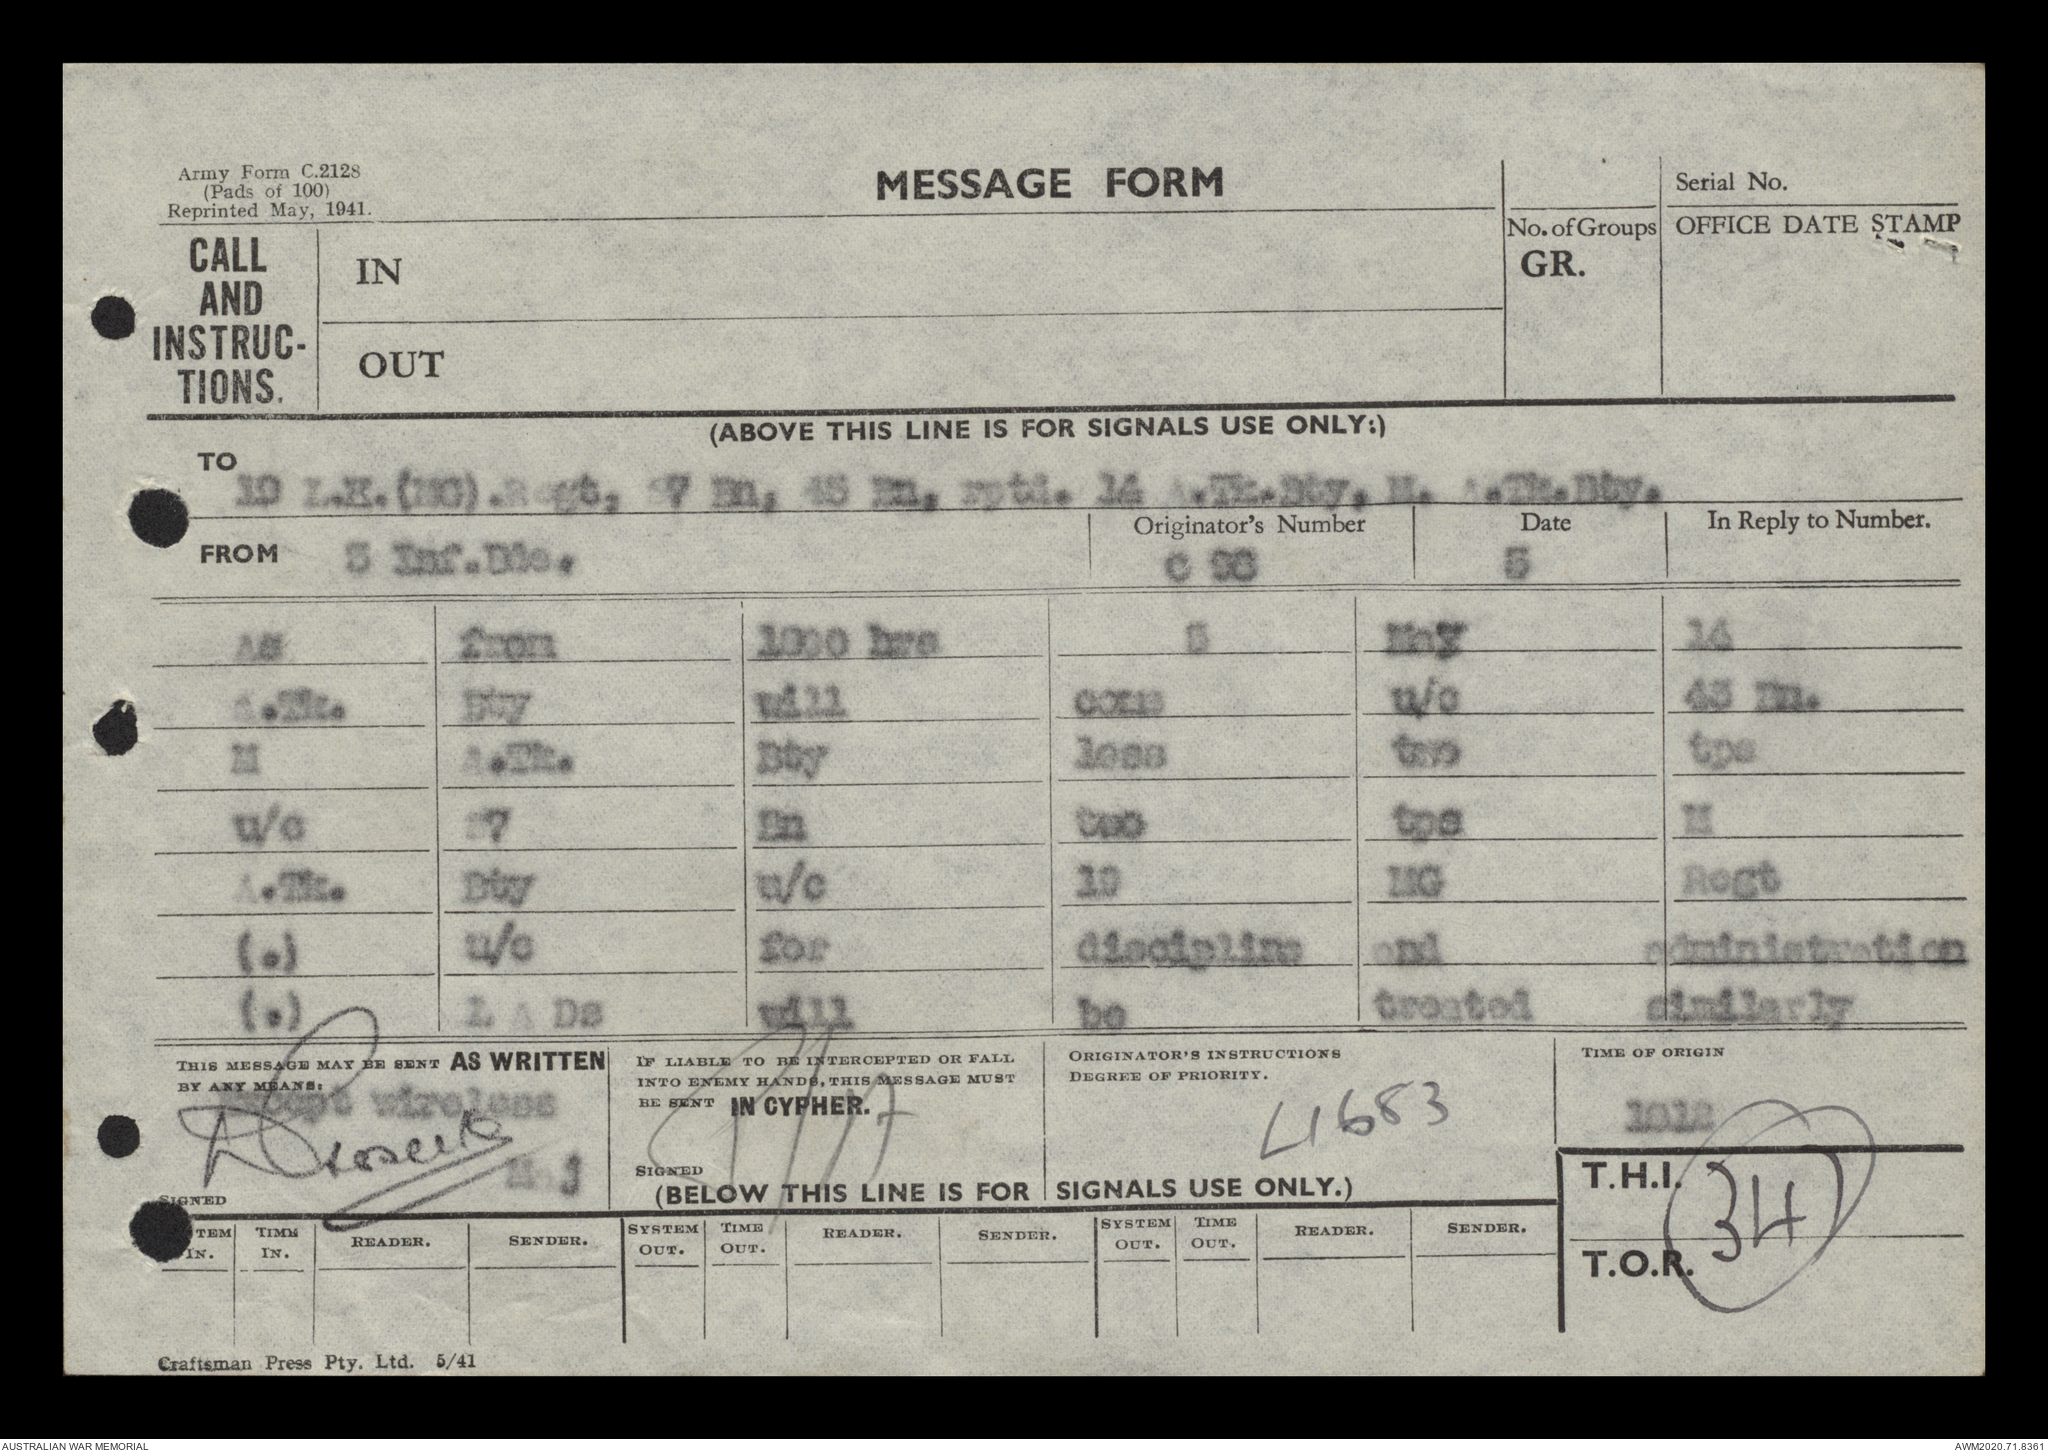 Army Form C.2128
(Pads of 100)
Reprinted May, 1941.
MESSAGE FORM
Serial No.
No. of Groups
GR.
OFFICE DATE STAMP
CALL
AND
INSTRUC-
TIONS.
IN
OUT
(ABOVE THIS LINE IS FOR SIGNALS USE ONLY.)
TO
19 L.H.(MG).Regt, 37 Bn, 45 Bn, rptd. 14 A.Tk.Bty, M. A.Tk.Bty.
FROM
5 Inf.Bde.
Originator's Number
Date
5
In Reply to Number.
As from hrs 5 May 14
A.Tk. Bty will come u/c 45 Bn.
M A.Tk. Bty less two tps
u/c 37 Bn two tps M
A.Tk. Bty u/c 19 MG Regt
(.) u/c for discipline and administration
(.) L A Ds will be treated similarly
THIS MESSAGE MAY BE SENT AS WRITTEN
BY ANY MEANS:
Except wireless
Maj
SIGNED
IF LIABLE TO BE INTERCEPTED OR FALL
INTO ENEMY HANDS, THIS MESSAGE MUST
BE SENT IN CYPHER.
SIGNED
ORIGINATOR'S INSTRUCTIONS
DEGREE OF PRIORITY.
TIME OF ORIGIN
1012
(BELOW THIS LINE IS FOR SIGNALS USE ONLY.)
T.H.I.
T.O.R.
34
TEM IN. TIME IN. READER. SENDER. SYSTEM OUT. TIME OUT. READER. SENDER. SYSTEM OUT. TIME OUT. READER. SENDER.
Craftsman Press Pty. Ltd. 5/41
AUSTRALIAN WAR MEMORIAL
AWM2020.71.8361